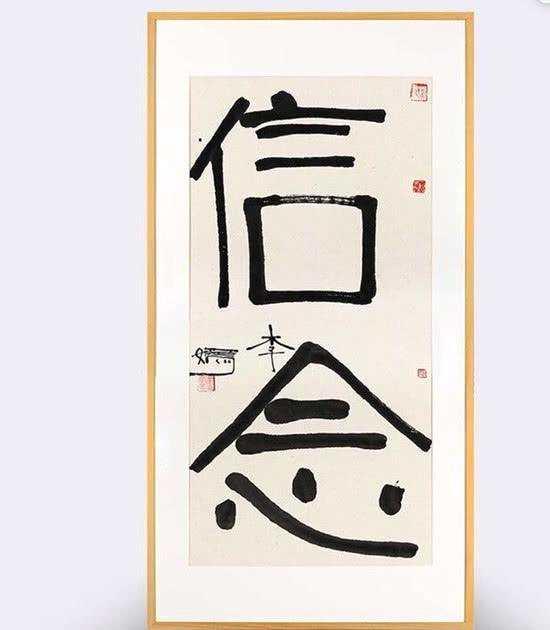 信念
李